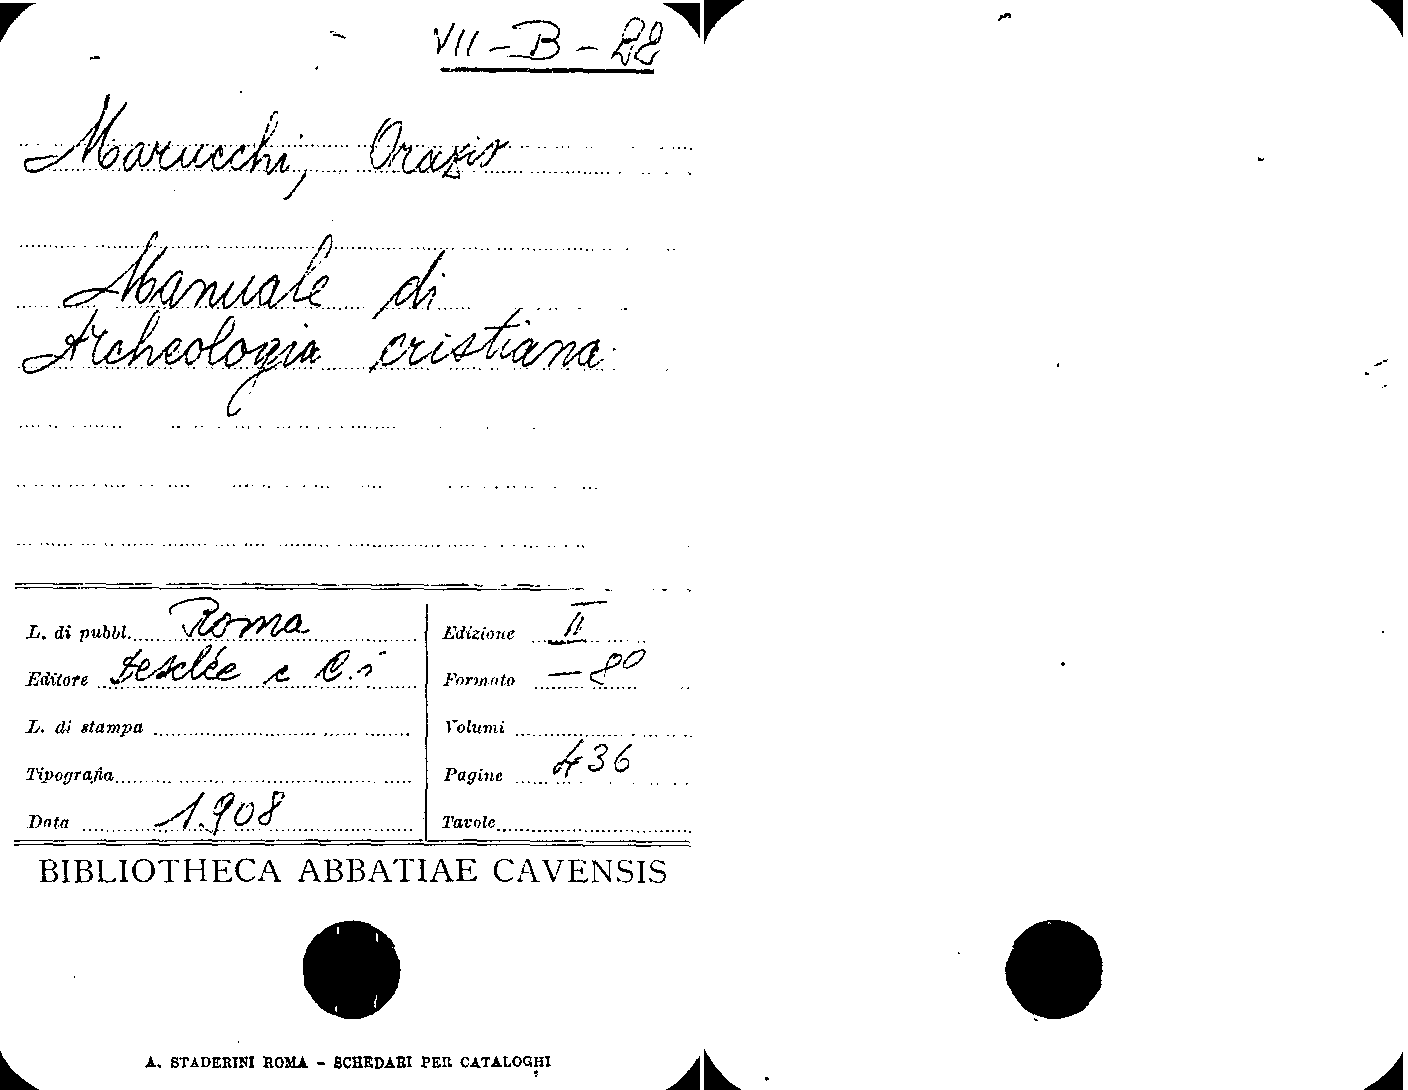 VII - B - 22
Marucchi, Orazio
Manuale di
Archeologia cristiana
L. di pubbl. Roma
Editore Desclée e C.i
L. di stampa
Tipografia
Data 1.908
Edizione II
Formato - 8º
Volumi
Pagine 436
Tavole
BIBLIOTHECA ABBATIAE CAVENSIS
A. STADERINI ROMA - SCHEDARI PER CATALOGHI